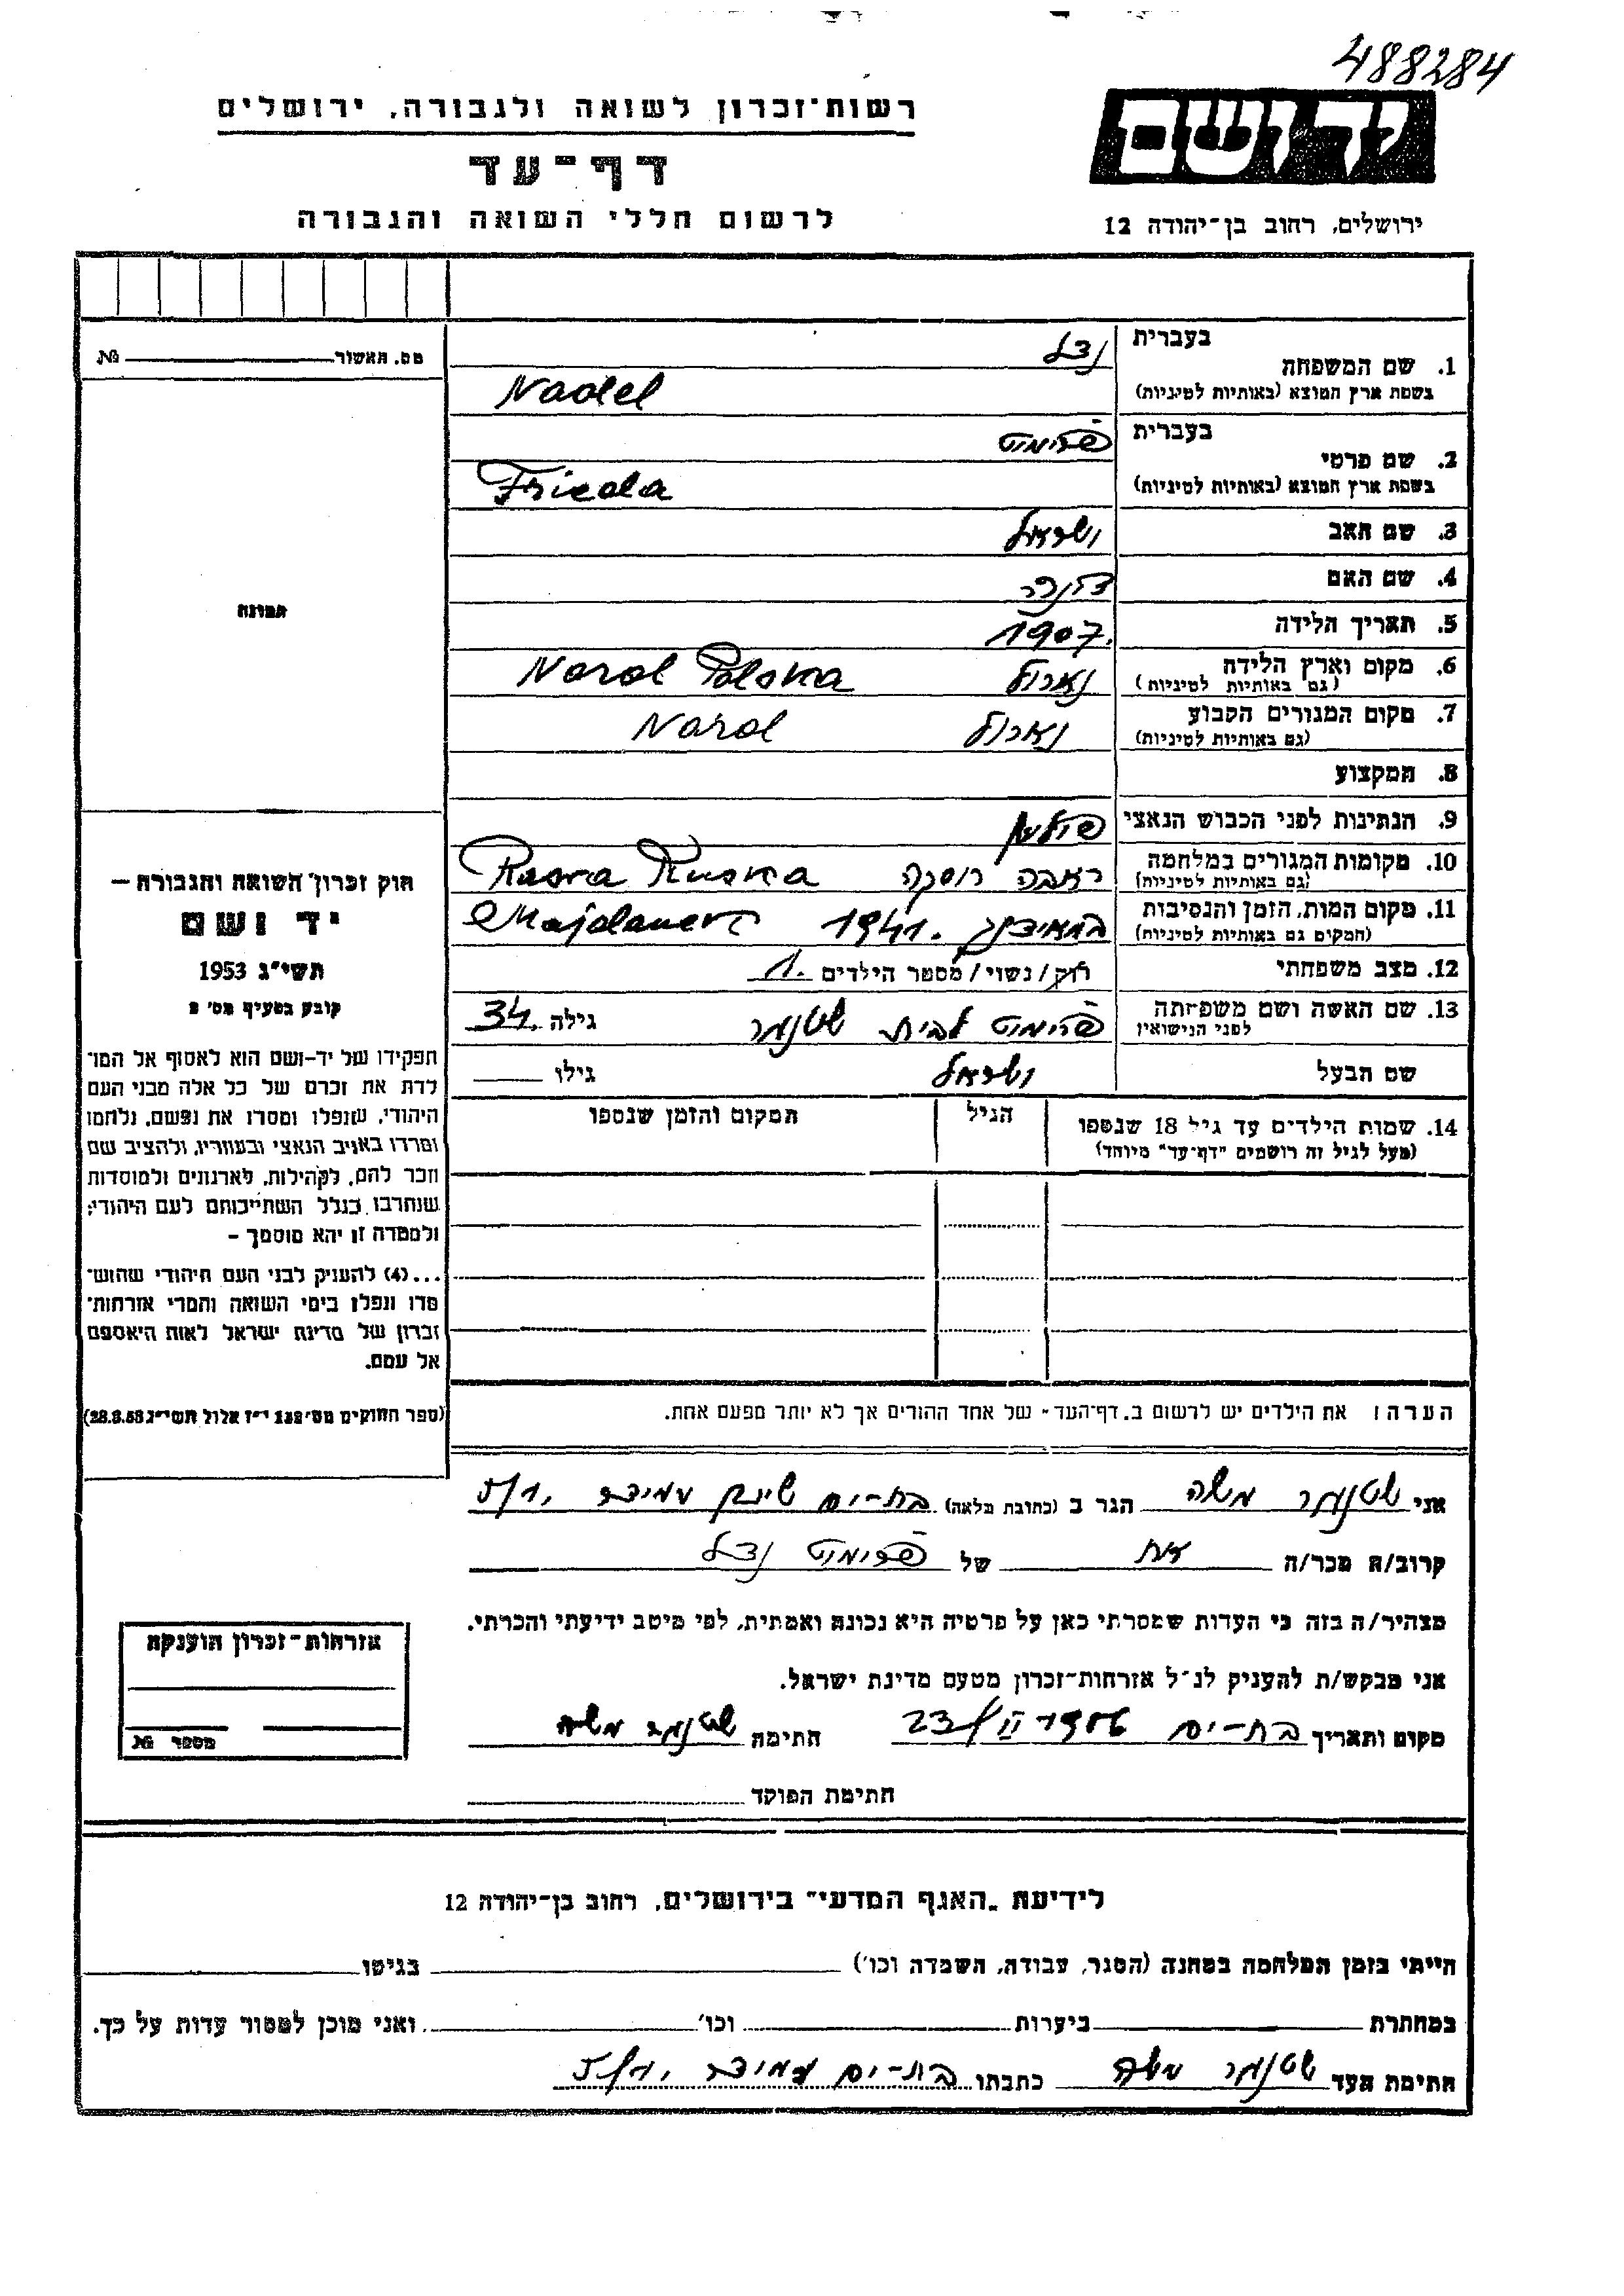 488284
יד ושם
ירושלים, רחוב בן־יהודה 12
רשות־זכרון לשואה ולגבורה, ירושלים
דף־עד
לרשום חללי השואה והגבורה
מס. האשור №
תמונה
חוק זכרון השואה והגבורה —
יד ושם
תשי"ג 1953
קובע בסעיף מס' 2
תפקידו של יד-ושם הוא לאסוף אל המו־
לדת את זכרם של כל אלה מבני העם
היהודי, שנפלו ומסרו את נפשם, נלחמו
ומרדו באויב הנאצי ובעוזריו, ולהציב שם
וזכר להם, לקהילות, לארגונים ולמוסדות
שנחרבו בגלל השתייכותם לעם היהודי;
ולמטרה זו יהא מוסמך –
...(4) להעניק לבני העם היהודי שהוש־
מדו ונפלו בימי השואה והמרי אזרחות־
זכרון של מדינת ישראל לאות היאספם
אל עמם.
(ספר החוקים מס' 132 י"ז אלול תשי"ג 28.8.53)
1. שם המשפחה בעברית נדל
בשפת ארץ המוצא (באותיות לטיניות) Nadel
2. שם פרטי בעברית פרימט
בשפת ארץ המוצא (באותיות לטיניות) Frieda
3. שם האב ישראל
4. שם האם
5. תאריך הלידה 1907.
6. מקום וארץ הלידה נארול Narol Polska
(גם באותיות לטיניות)
7. מקום המגורים הקבוע נארול Narol
(גם באותיות לטיניות)
8. המקצוע
9. הנתינות לפני הכבוש הנאצי פולנית
10. מקומות המגורים במלחמה ראבה רוסקה Rawa Ruska
(גם באותיות לטיניות)
11. מקום המות, הזמן והנסיבות במאידנק 1941. Majdanek
(המקום גם באותיות לטיניות)
12. מצב משפחתי רווק/נשוי/מספר הילדים 1.
13. שם האשה ושם משפחתה לפני הנישואין פרימט לבית שטנגר גילה 34.
שם הבעל ישראל גילו
14. שמות הילדים עד גיל 18 שנספו הגיל המקום והזמן שנספו
(מעל לגיל זה רושמים "דף־עד" מיוחד)
הערה: את הילדים יש לרשום ב„דף־העד" של אחד ההורים אך לא יותר מפעם אחת.
אני שטנגר משה הגר ב (כתובת מלאה) בת-ים שיכון עמידר 5/1.
קרוב/ה מכר/ה אח של פרימט נדל
מצהיר/ה בזה כי העדות שמסרתי כאן על פרטיה היא נכונה ואמתית, לפי מיטב ידיעתי והכרתי.
אני מבקש/ת להעניק לנ"ל אזרחות־זכרון מטעם מדינת ישראל.
מקום ותאריך בת-ים 23/II 1956 חתימה שטנגר משה
חתימת הפוקד
אזרחות־זכרון הוענקה
מספר №
לידיעת „האגף המדעי" בירושלים, רחוב בן־יהודה 12
הייתי בזמן המלחמה במחנה (הסגר, עבודה, השמדה וכו') בגיטו
במחתרת ביערות וכו' ואני מוכן למסור עדות על כך.
חתימת העד שטנגר משה כתבתו בת-ים עמידר 5/1.